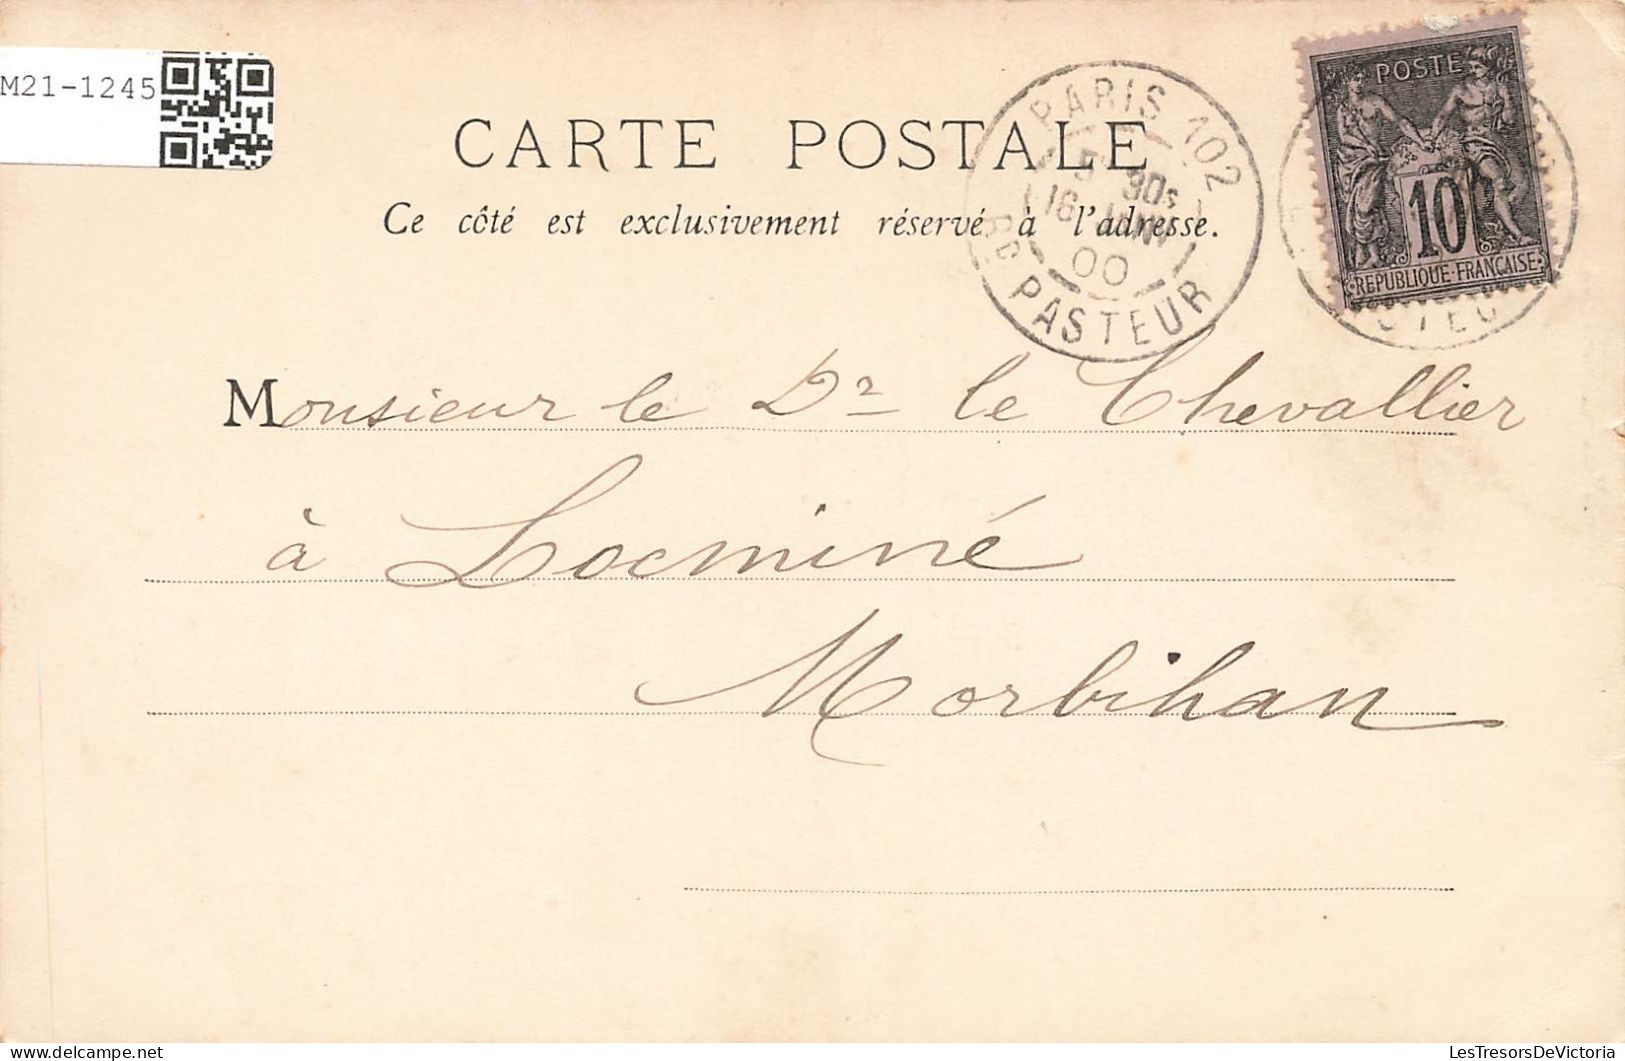 M21-1245
CARTE POSTALE
Ce côté est exclusivement réservé à l'adresse.
PARIS 102
5 30s
16 JANV
00
Bd PASTEUR
POSTE
10
REPUBLIQUE·FRANÇAISE
Monsieur le Dr le Chevallier
à Locminé
Morbihan
LesTresorsDeVictoria